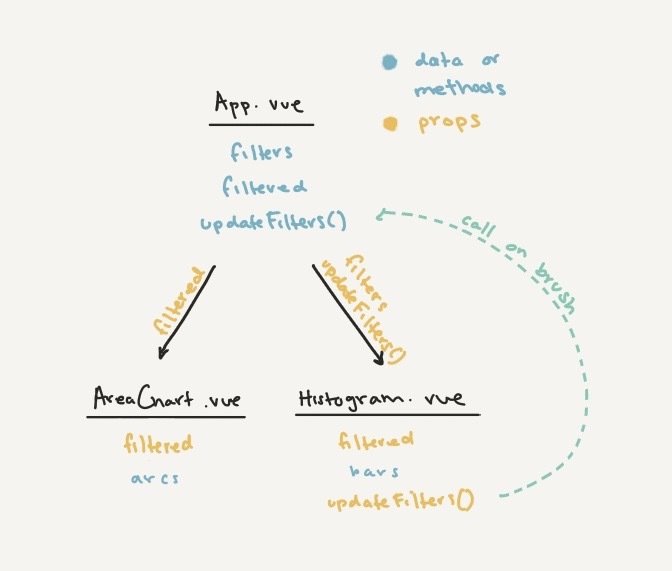 data or
methods
props
App.vue
filters
filtered
updateFilters()
call on brush
filtered
filters
updateFilters()
AreaChart.vue
filtered
arcs
Histogram.vue
filtered
bars
updateFilters()